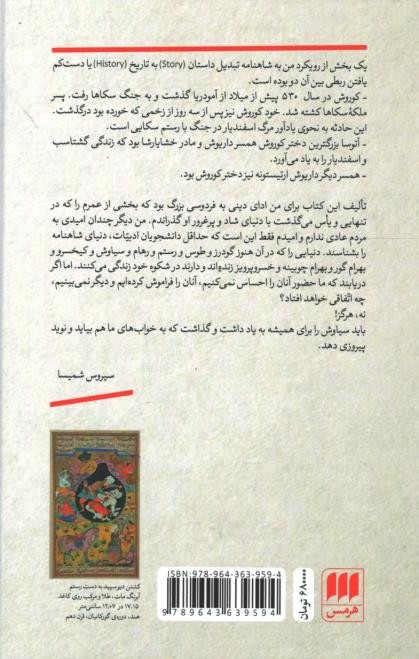 یک بخش از رویکرد من به شاهنامه تبدیل داستان (Story) به تاریخ (History) یا دست‌کم
یافتن ربطی بین آن دو بوده است.
- کوروش در سال ۵۳۰ پیش از میلاد از آمودریا گذشت و به جنگ سکاها رفت. پسر
ملکهٔ سکاها کشته شد. خود کوروش نیز پس از سه روز از زخمی که خورده بود درگذشت.
این حادثه به نحوی یادآور مرگ اسفندیار در جنگ با رستم سکایی است.
- آتوسا بزرگترین دختر کوروش همسر داریوش و مادر خشایارشا بود که زندگی گشتاسب
و اسفندیار را به یاد می‌آورد.
- همسر دیگر داریوش ارتیستونه نیز دختر کوروش بود.
تألیف این کتاب برای من ادای دینی به فردوسی بزرگ بود که بخشی از عمرم را که در
تنهایی و یأس می‌گذشت با دنیای شاد و پرغرور او گذراندم. من دیگر چندان امیدی به
مردم عادی ندارم و امیدم فقط این است که حداقل دانشجویان ادبیّات، دنیای شاهنامه
را بشناسند. دنیایی را که در آن هنوز گودرز و طوس و رستم و رهام و سیاوش و کیخسرو و
بهرام گور و بهرام چوبینه و خسروپرویز زنده‌اند و دارند در شکوه خود زندگی می‌کنند. اما اگر
دریابند که ما حضور آنان را احساس نمی‌کنیم، آنان را فراموش کرده‌ایم و دیگر نمی‌بینیم،
چه اتّفاقی خواهد افتاد؟
نه، هرگز!
باید سیاوش را برای همیشه به یاد داشت و گذاشت که به خواب‌های ما هم بیاید و نوید
پیروزی دهد.
سیروس شمیسا
کشتن دیو سپید به دست رستم
آبرنگ مات، طلا و مرکب روی کاغذ
۱۷٫۱۵ در ۱۲٫۰۷ سانتی‌متر
هند، دوره‌ی گورکانیان، قرن دهم
ISBN: 978-964-363-959-4
9 789643 639594
۶۸۰۰۰۰ تومان
هرمس